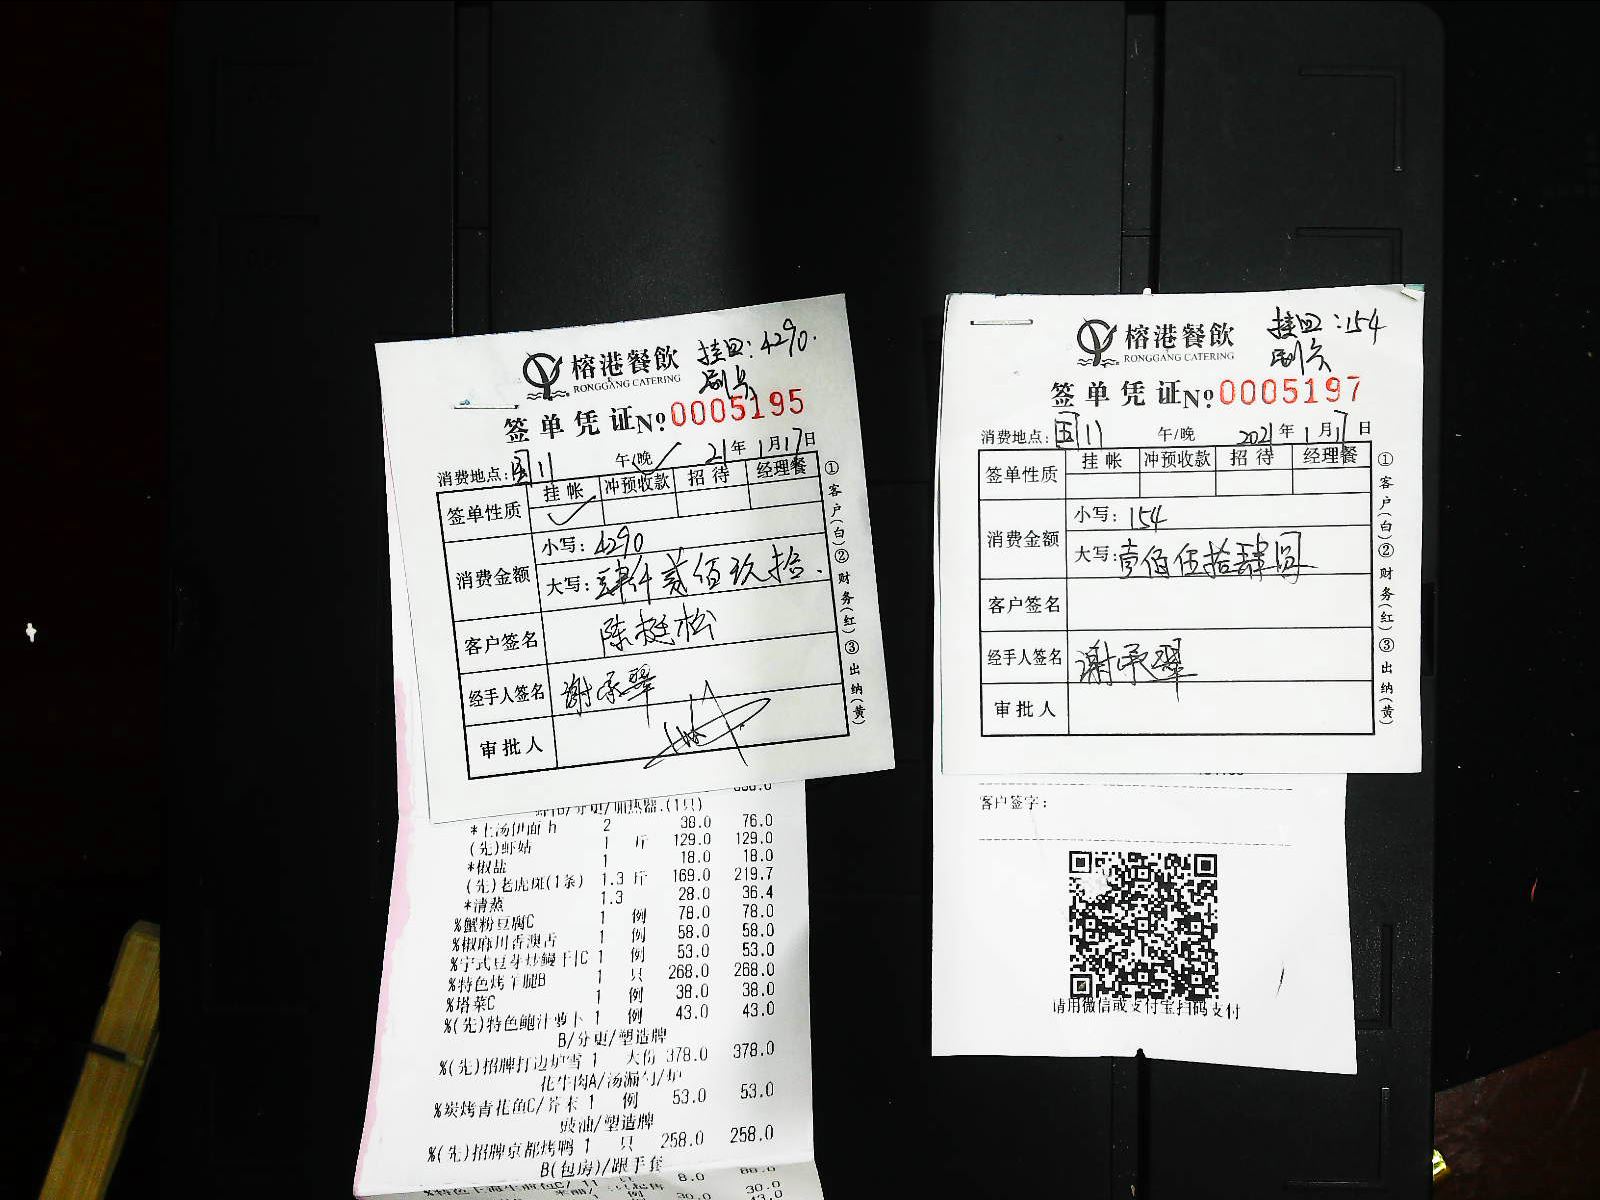 榕港餐飲
RONGGANG CATERING
挂四:4290.
刷卡
签单凭证No.0005195
消费地点: 11 午/晚 21年1月17日
签单性质 挂帐 冲预收款 招待 经理餐
消费金额 小写: 4290
大写: 肆仟贰佰玖拾.
客户签名 陈挺松
经手人签名 谢承翠
审批人
①客户(白)②财务(红)③出纳(黄)
*上汤伊面h 2 38.0 76.0
(先)虾姑 1 斤 129.0 129.0
*椒盐 1 18.0 18.0
(先)老虎斑(1条) 1.3 斤 169.0 219.7
*清蒸 1.3 28.0 36.4
%蟹粉豆腐C 1 例 78.0 78.0
%椒麻川香澳舌 1 例 58.0 58.0
%宁式豆芽炒鳗干C 1 例 53.0 53.0
%特色烤羊腿B 1 只 268.0 268.0
%塔菜C 1 例 38.0 38.0
%(先)特色鲍汁萝卜 1 例 43.0 43.0
B/分更/塑造牌
%(先)招牌打边炉雪 1 大份 378.0 378.0
花牛肉A/汤漏勺/炉
%炭烤青花鱼C/芥末 1 例 53.0 53.0
豉油/塑造牌
%(先)招牌京都烤鸭 1 只 258.0 258.0
B(包房)/跟手套
8.0 88.0
1 例 30.0 30.0
43.0
榕港餐飲
RONGGANG CATERING
挂四:154
刷卡
签单凭证No.0005197
消费地点: 11 午/晚 2021年1月17日
签单性质 挂帐 冲预收款 招待 经理餐
消费金额 小写: 154
大写: 壹佰伍拾肆圆
客户签名
经手人签名 谢承翠
审批人
①客户(白)②财务(红)③出纳(黄)
客户签字:
请用微信或支付宝扫码支付